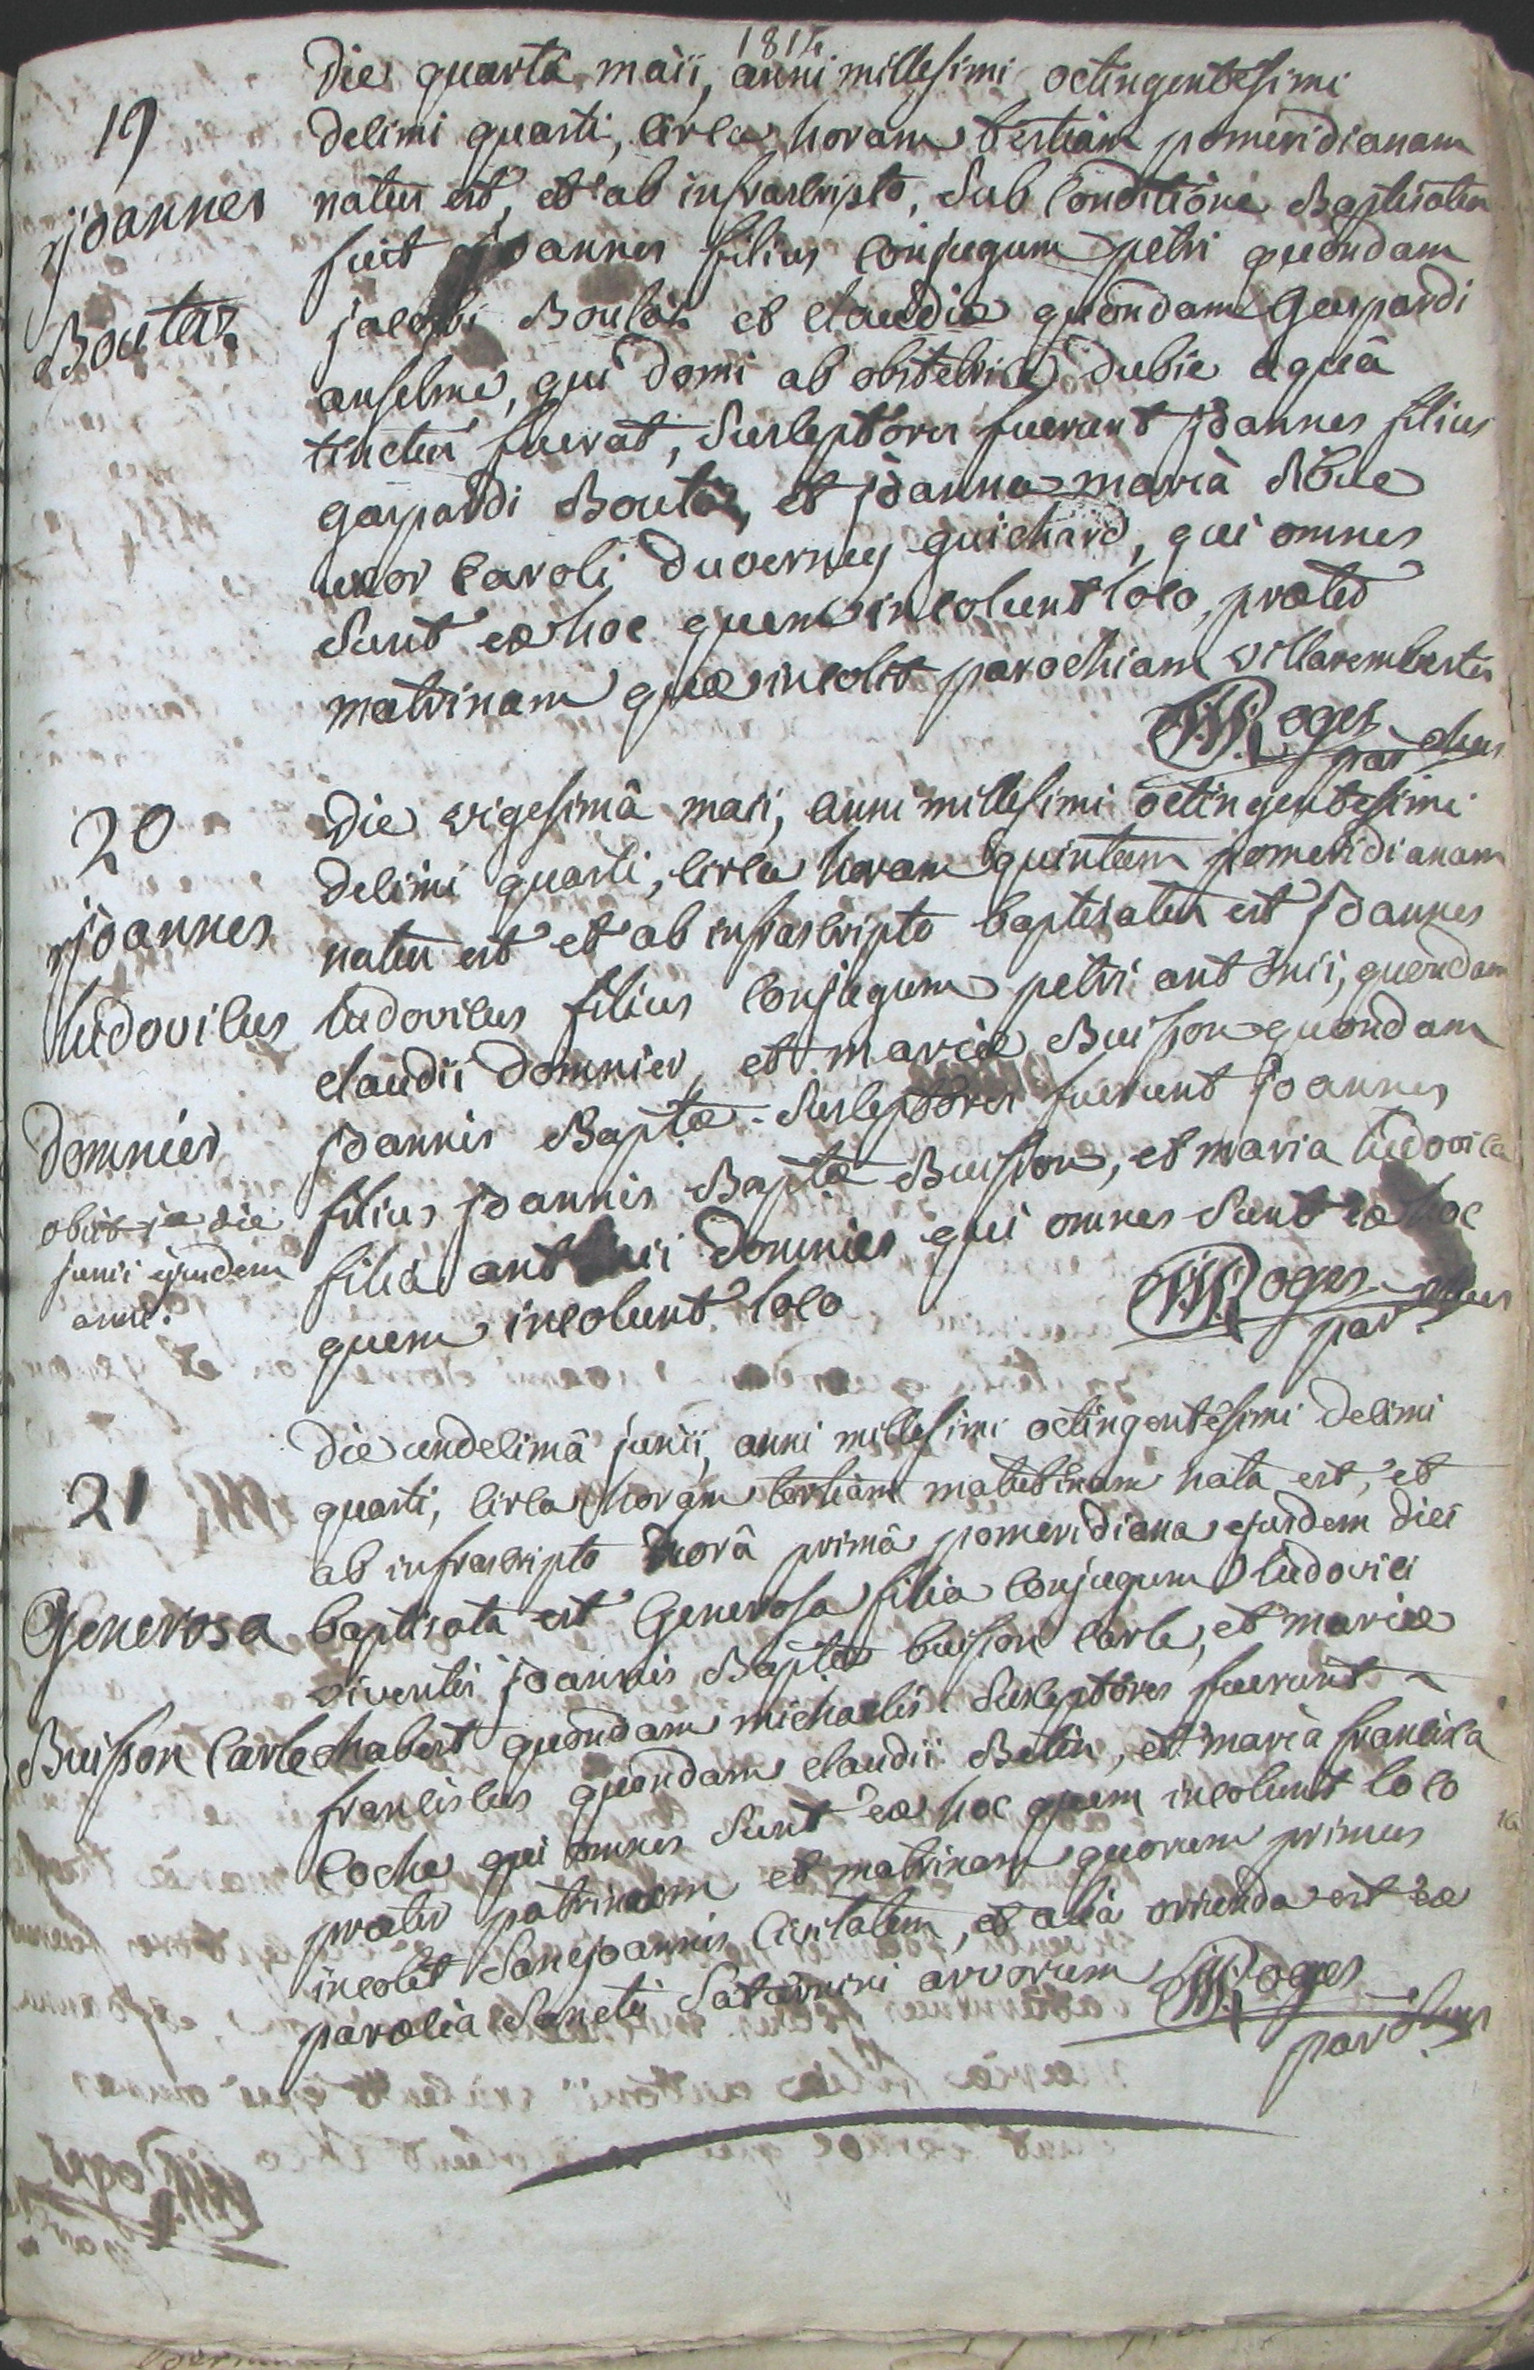 1814
Die quartâ maii, anni millesimi octingentesimi
19
decimi quarti, circa horam tertiam pomeridianam
joannes
natus est, et ab infrascripto, sub conditione Baptisatus
fuit joannes filius conjugum petri quondam
Boutaz
jacobi Boutaz et claudiæ quondam Gaspardi
anselme, qui domi ab obstetrice dubie aquâ
tinctus fuerat, susceptores fuerunt joannes filius
gaspardi Boutaz, et joanna maria Sibue
uxor caroli duverney guichard, qui omnes
sunt ex hoc quem incolunt loco, præter
matrinam quæ incolit parochiam villarembertus
Roges
parochus
20
Die vigesimâ maii, anni millesimi octingentesimi
decimi quarti, circa horam quintam pomeridianam
joannes
natus est et ab infrascripto baptisatus est joannes
ludovicus
ludovicus filius conjugum petri antonii, quondam
claudii domnier, et mariæ Buisson quondam
domnier
joannis Baptæ. susceptores fuerunt joannes
filius joannis Baptæ Buisson, et maria ludovica
obiit die
junii ejusdem
anni.
filia antonii domnier qui omnes sunt ex hoc
quem incolunt loco
Roges
parochus
Die undecimâ junii, anni millesimi octingentesimi decimi
21
quarti, circa horam tertiam matutinam nata est, et
ab infrascripto horâ primâ pomeridiana ejusdem diei
Generosa
baptisata est Generosa filia conjugum ludovici
viventis joannis Baptæ buisson carle, et mariæ
Buisson Carle
chabert quondam michaelis. susceptores fuerunt
franciscus quondam claudii Betin, et maria francisca
coche qui omnes sunt ex hoc quem incolunt loco
præter patrinum et matrinam quorum primus
incolit Sanejoannis Civitatem, et alia oriunda est ex
parœcia Sancti Saturnini arvorum
Roges
parochus